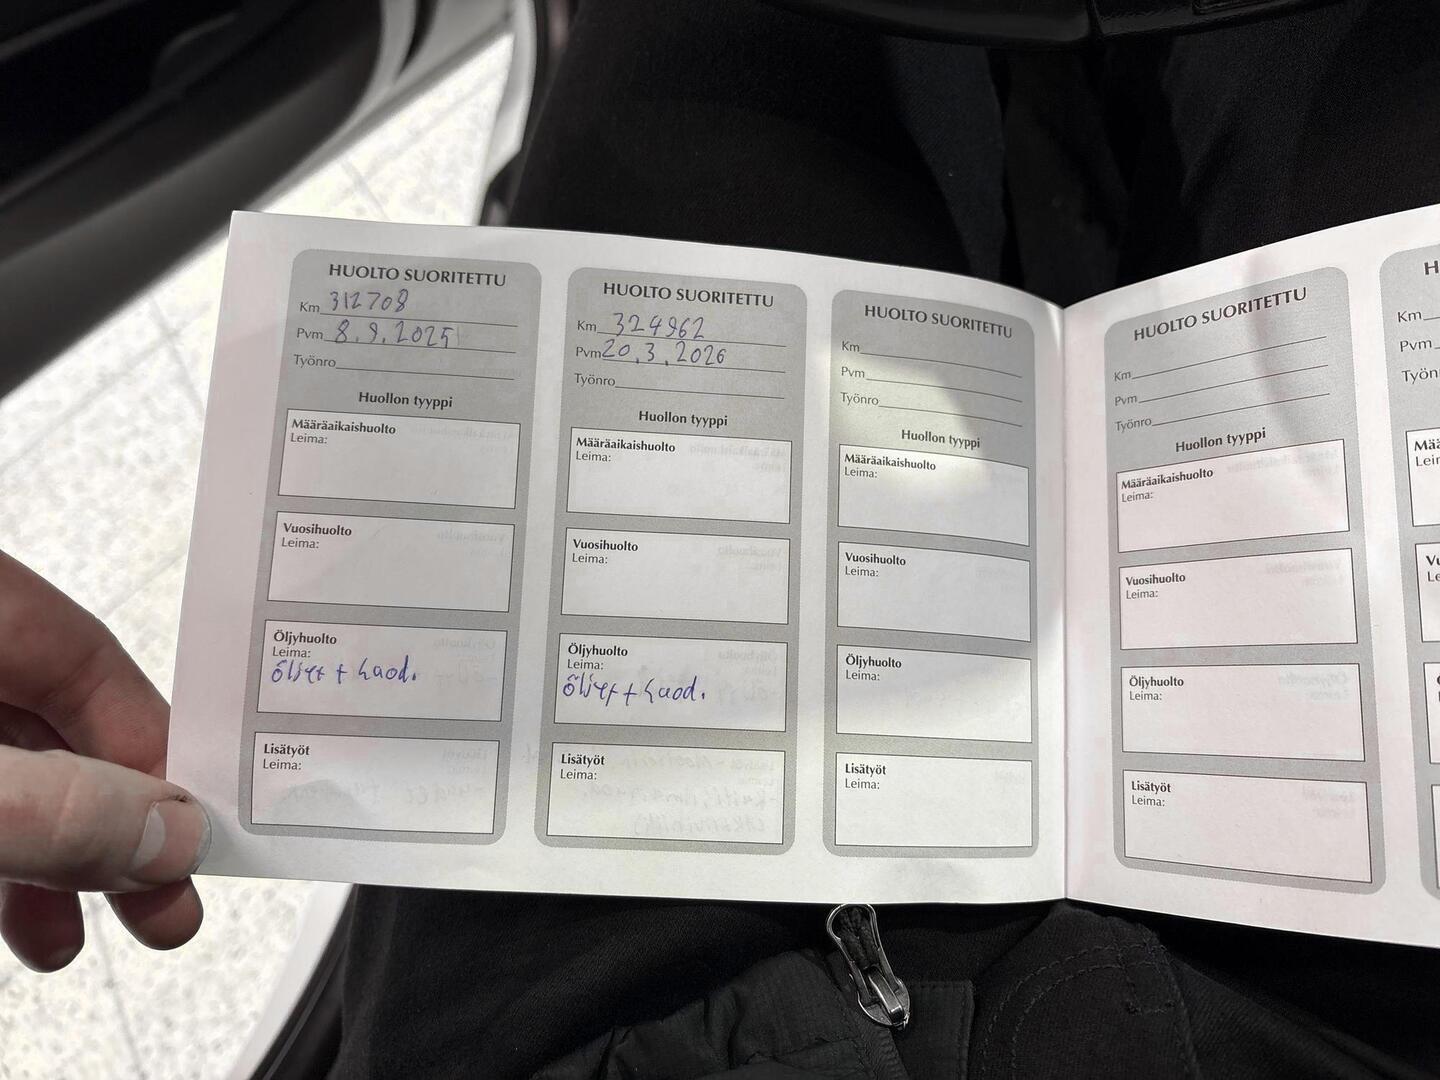 HUOLTO SUORITETTU
Km 312708
Pvm 8.9.2025
Työnro
Huollon tyyppi
Määräaikaishuolto
Leima:
Vuosihuolto
Leima:
Öljyhuolto
Leima:
öljyt + suod.
Lisätyöt
Leima:
HUOLTO SUORITETTU
Km 324962
Pvm 20.3.2026
Työnro
Huollon tyyppi
Määräaikaishuolto
Leima:
Vuosihuolto
Leima:
Öljyhuolto
Leima:
öljyt + suod.
Lisätyöt
Leima:
HUOLTO SUORITETTU
Km
Pvm
Työnro
Huollon tyyppi
Määräaikaishuolto
Leima:
Vuosihuolto
Leima:
Öljyhuolto
Leima:
Lisätyöt
Leima:
HUOLTO SUORITETTU
Km
Pvm
Työnro
Huollon tyyppi
Määräaikaishuolto
Leima:
Vuosihuolto
Leima:
Öljyhuolto
Leima:
Lisätyöt
Leima:
Km
Pvm